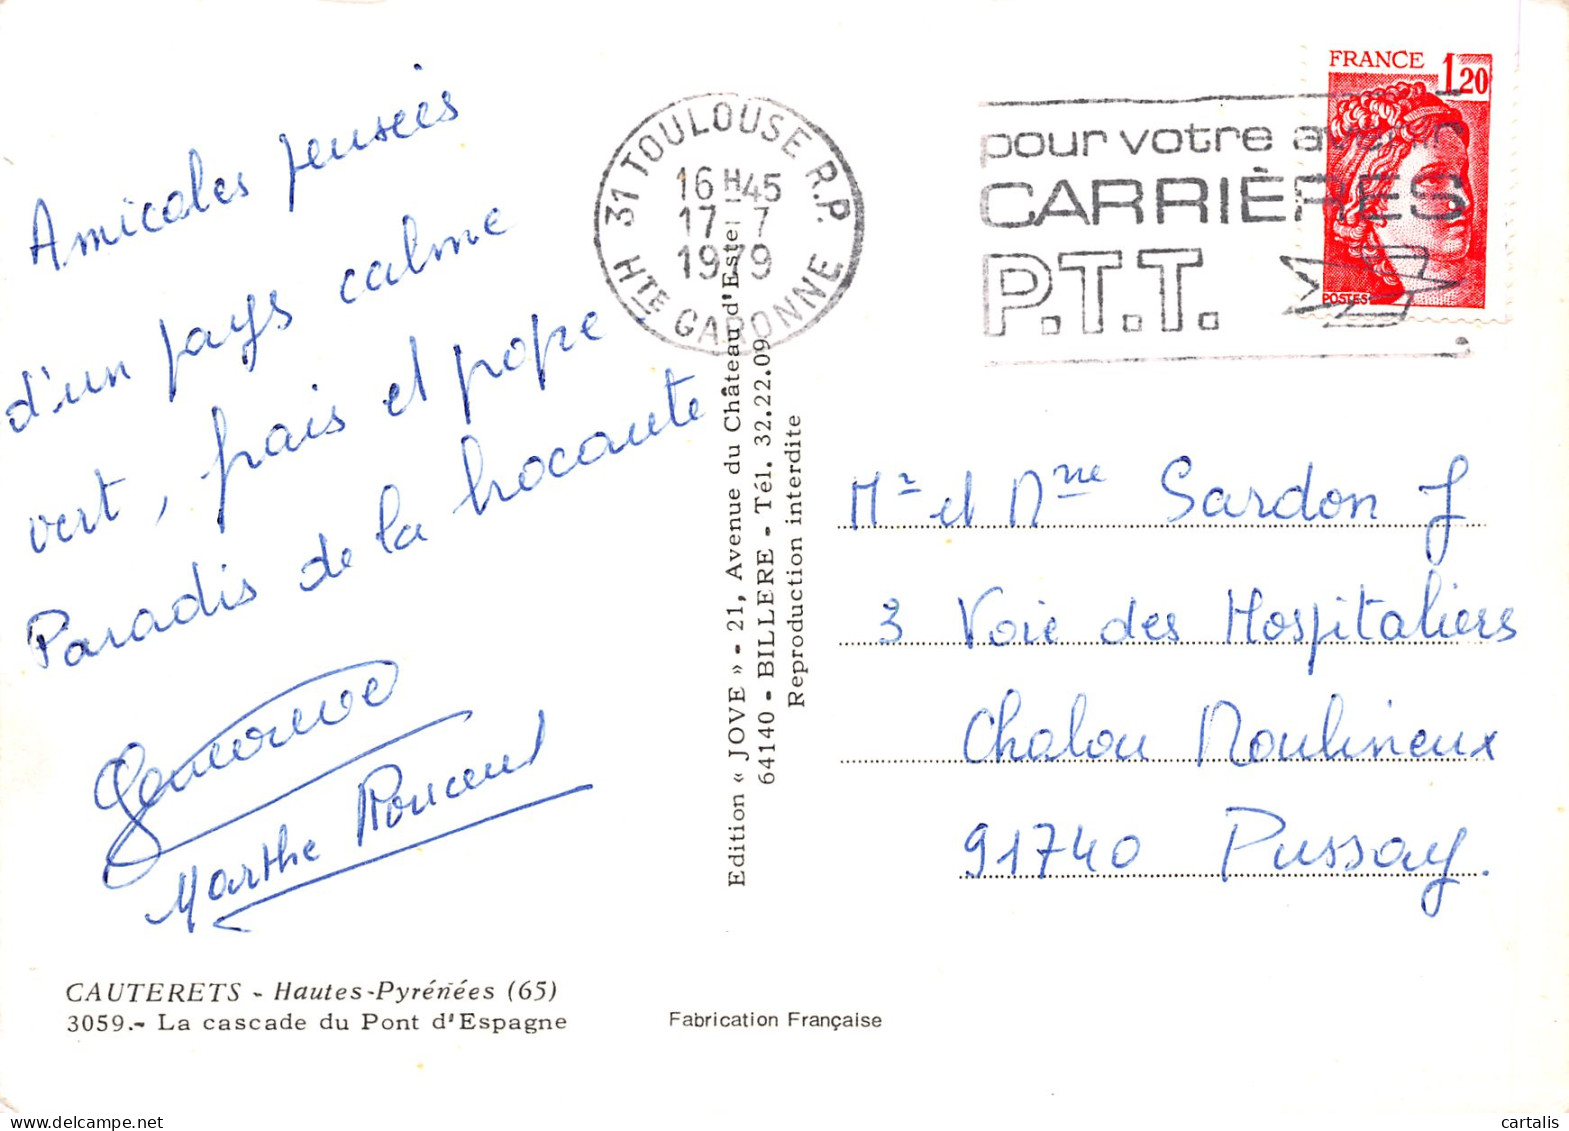 Amicales pensées
d'un pays calme
vert, frais et pope
Paradis de la brocante
Marthe
CAUTERETS - Hautes-Pyrénées (65)
3059.- La cascade du Pont d'Espagne
31 TOULOUSE R.P.
16H45
17-7
1979
HTE GARONNE
Edition « JOVE » - 21, Avenue du Château d'Este
64140 - BILLERE - Tél. 32.22.09
Reproduction interdite
Fabrication Française
pour votre avenir
CARRIÈRES
P.T.T.
FRANCE 1,20
POSTES
Mr et Mme Sardon J
3 Voie des Hospitaliers
Chalou Moulineux
91740 Pussay.
cartalis